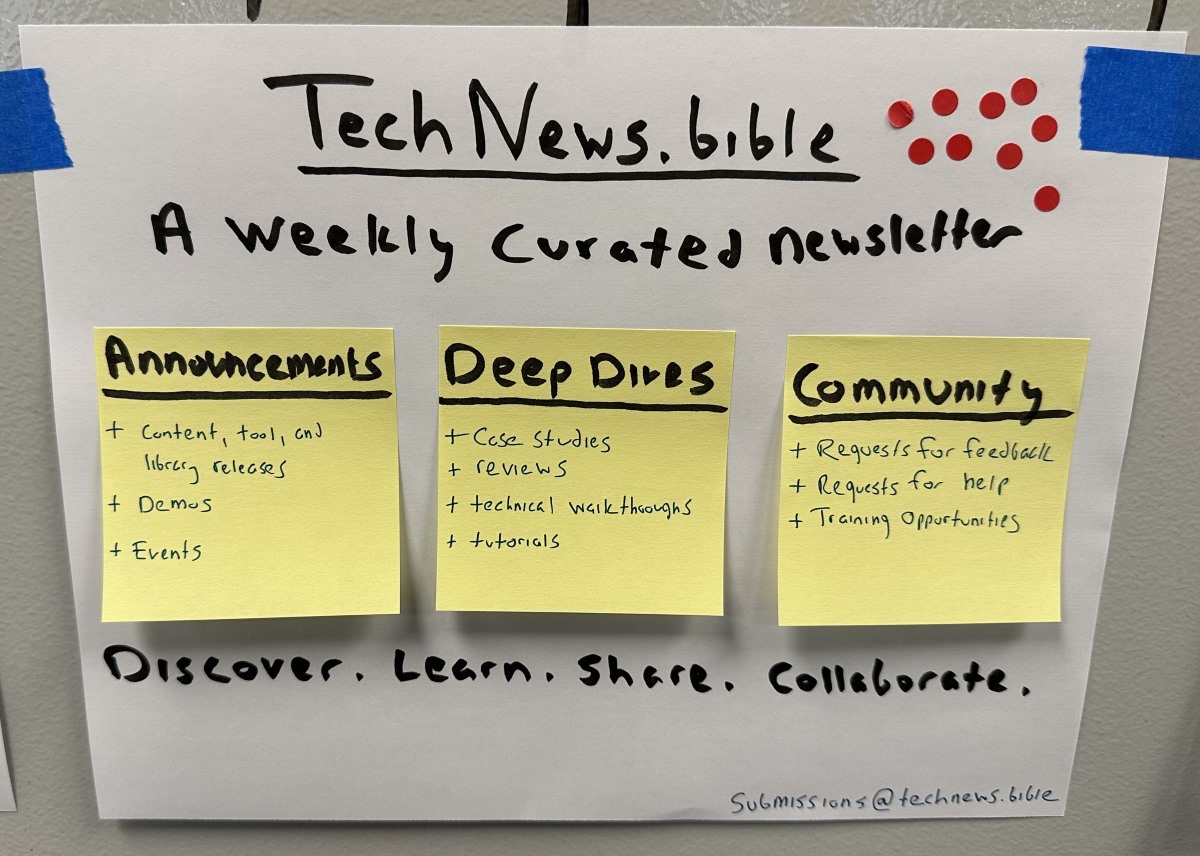 TechNews.bible
A weekly curated newsletter
Announcements
+ Content, tool, and
library releases
+ Demos
+ Events
Deep Dives
+ Case studies
+ reviews
+ technical walkthroughs
+ tutorials
Community
+ Requests for feedback
+ Requests for help
+ Training Opportunities
Discover. Learn. Share. Collaborate.
Submissions@technews.bible